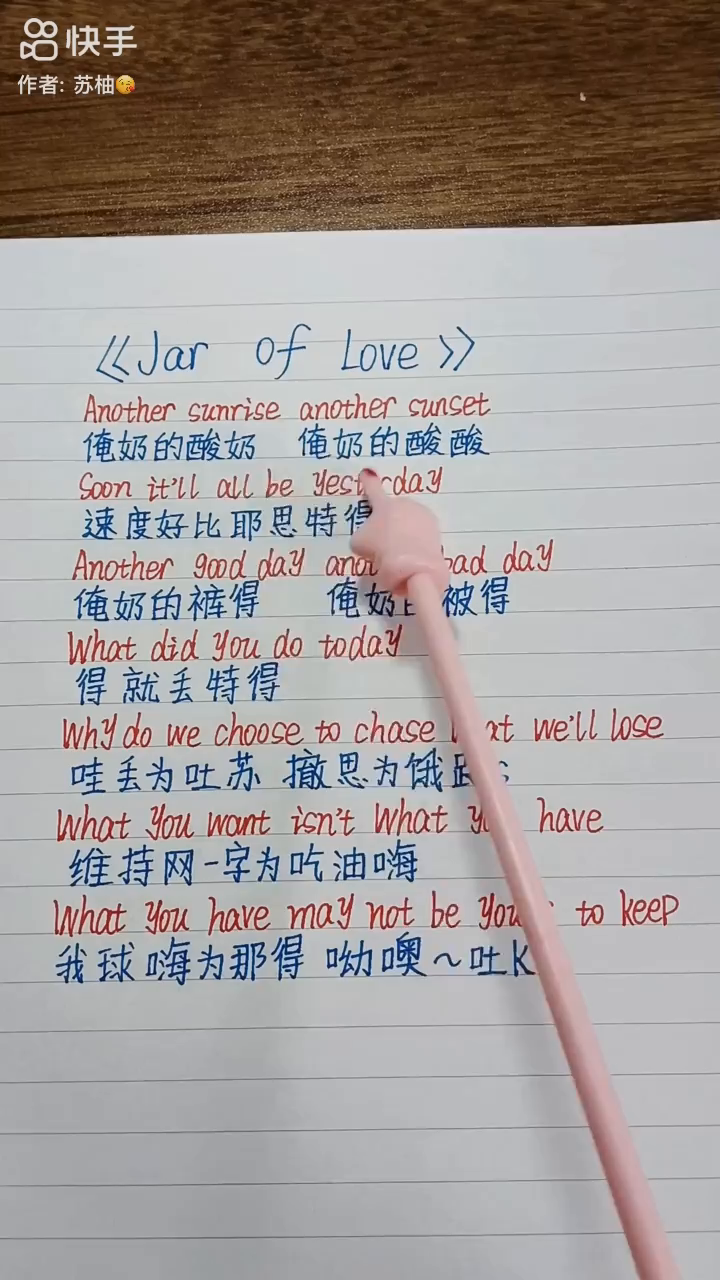 快手
作者: 苏柚😘
《Jar of Love》
Another sunrise another sunset
俺奶的酸奶 俺奶的酸酸
Soon it'll all be yesterday
速度好比耶思特得
Another good day bad day
俺奶的裤得 俺奶 被得
What did you do today
得就丢特得
Why do we choose to chase we'll lose
哇丢为吐苏 撤思为饿
What you want isn't what have
维持网一字为吃油嗨
What you have may not be to keep
我球嗨为那得 呦噢~吐K